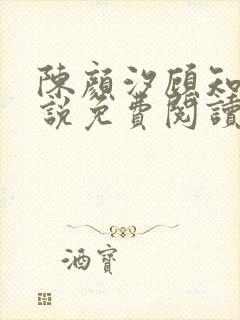 陳顏汐顧知
說免費閱讀
酒寶